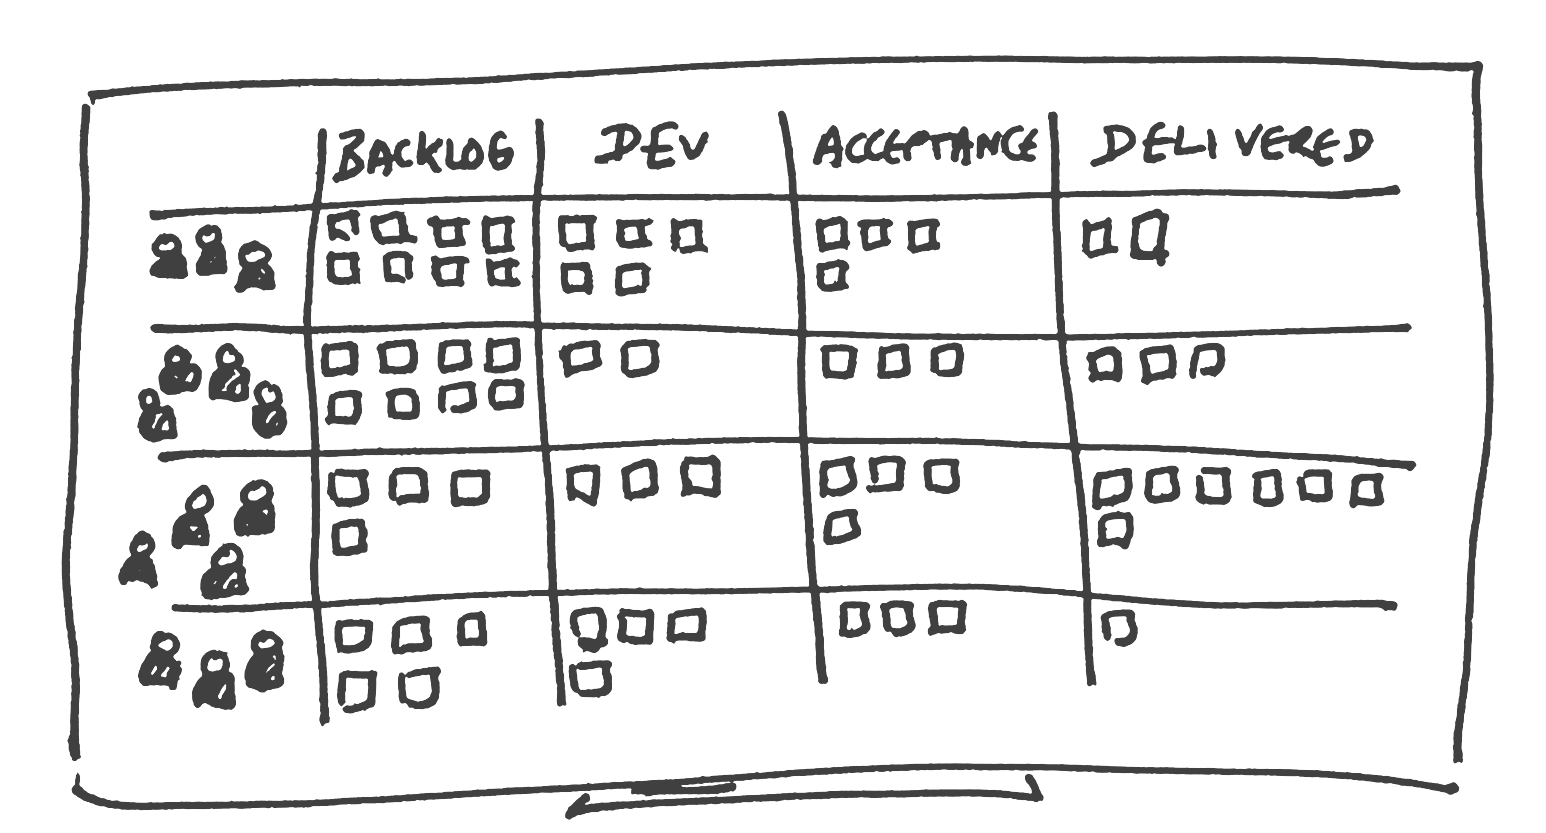 BACKLOG DEV ACCEPTANCE DELIVERED